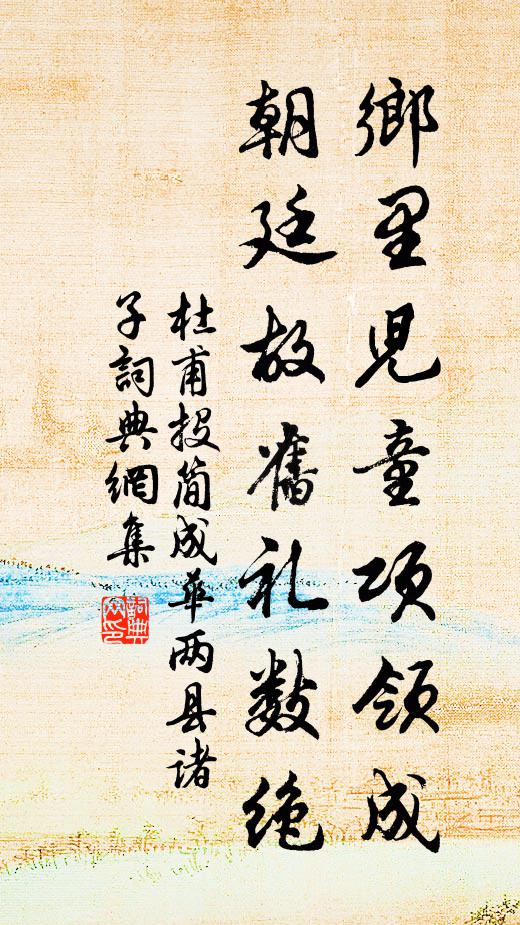 鄉里児童項領成
朝廷故舊礼數絶
杜甫投简成華两县诸
子詞典網集
詞典